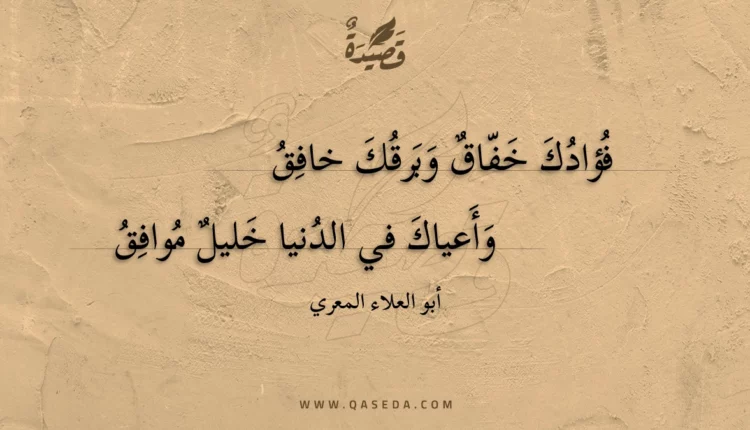 قَصِيدَةٌ
فُؤادُكَ خَفّاقٌ وَبَرقُكَ خافِقُ
وَأَعياكَ في الدُنيا خَليلٌ مُوافِقُ
أبو العلاء المعري
WWW.QASEDA.COM